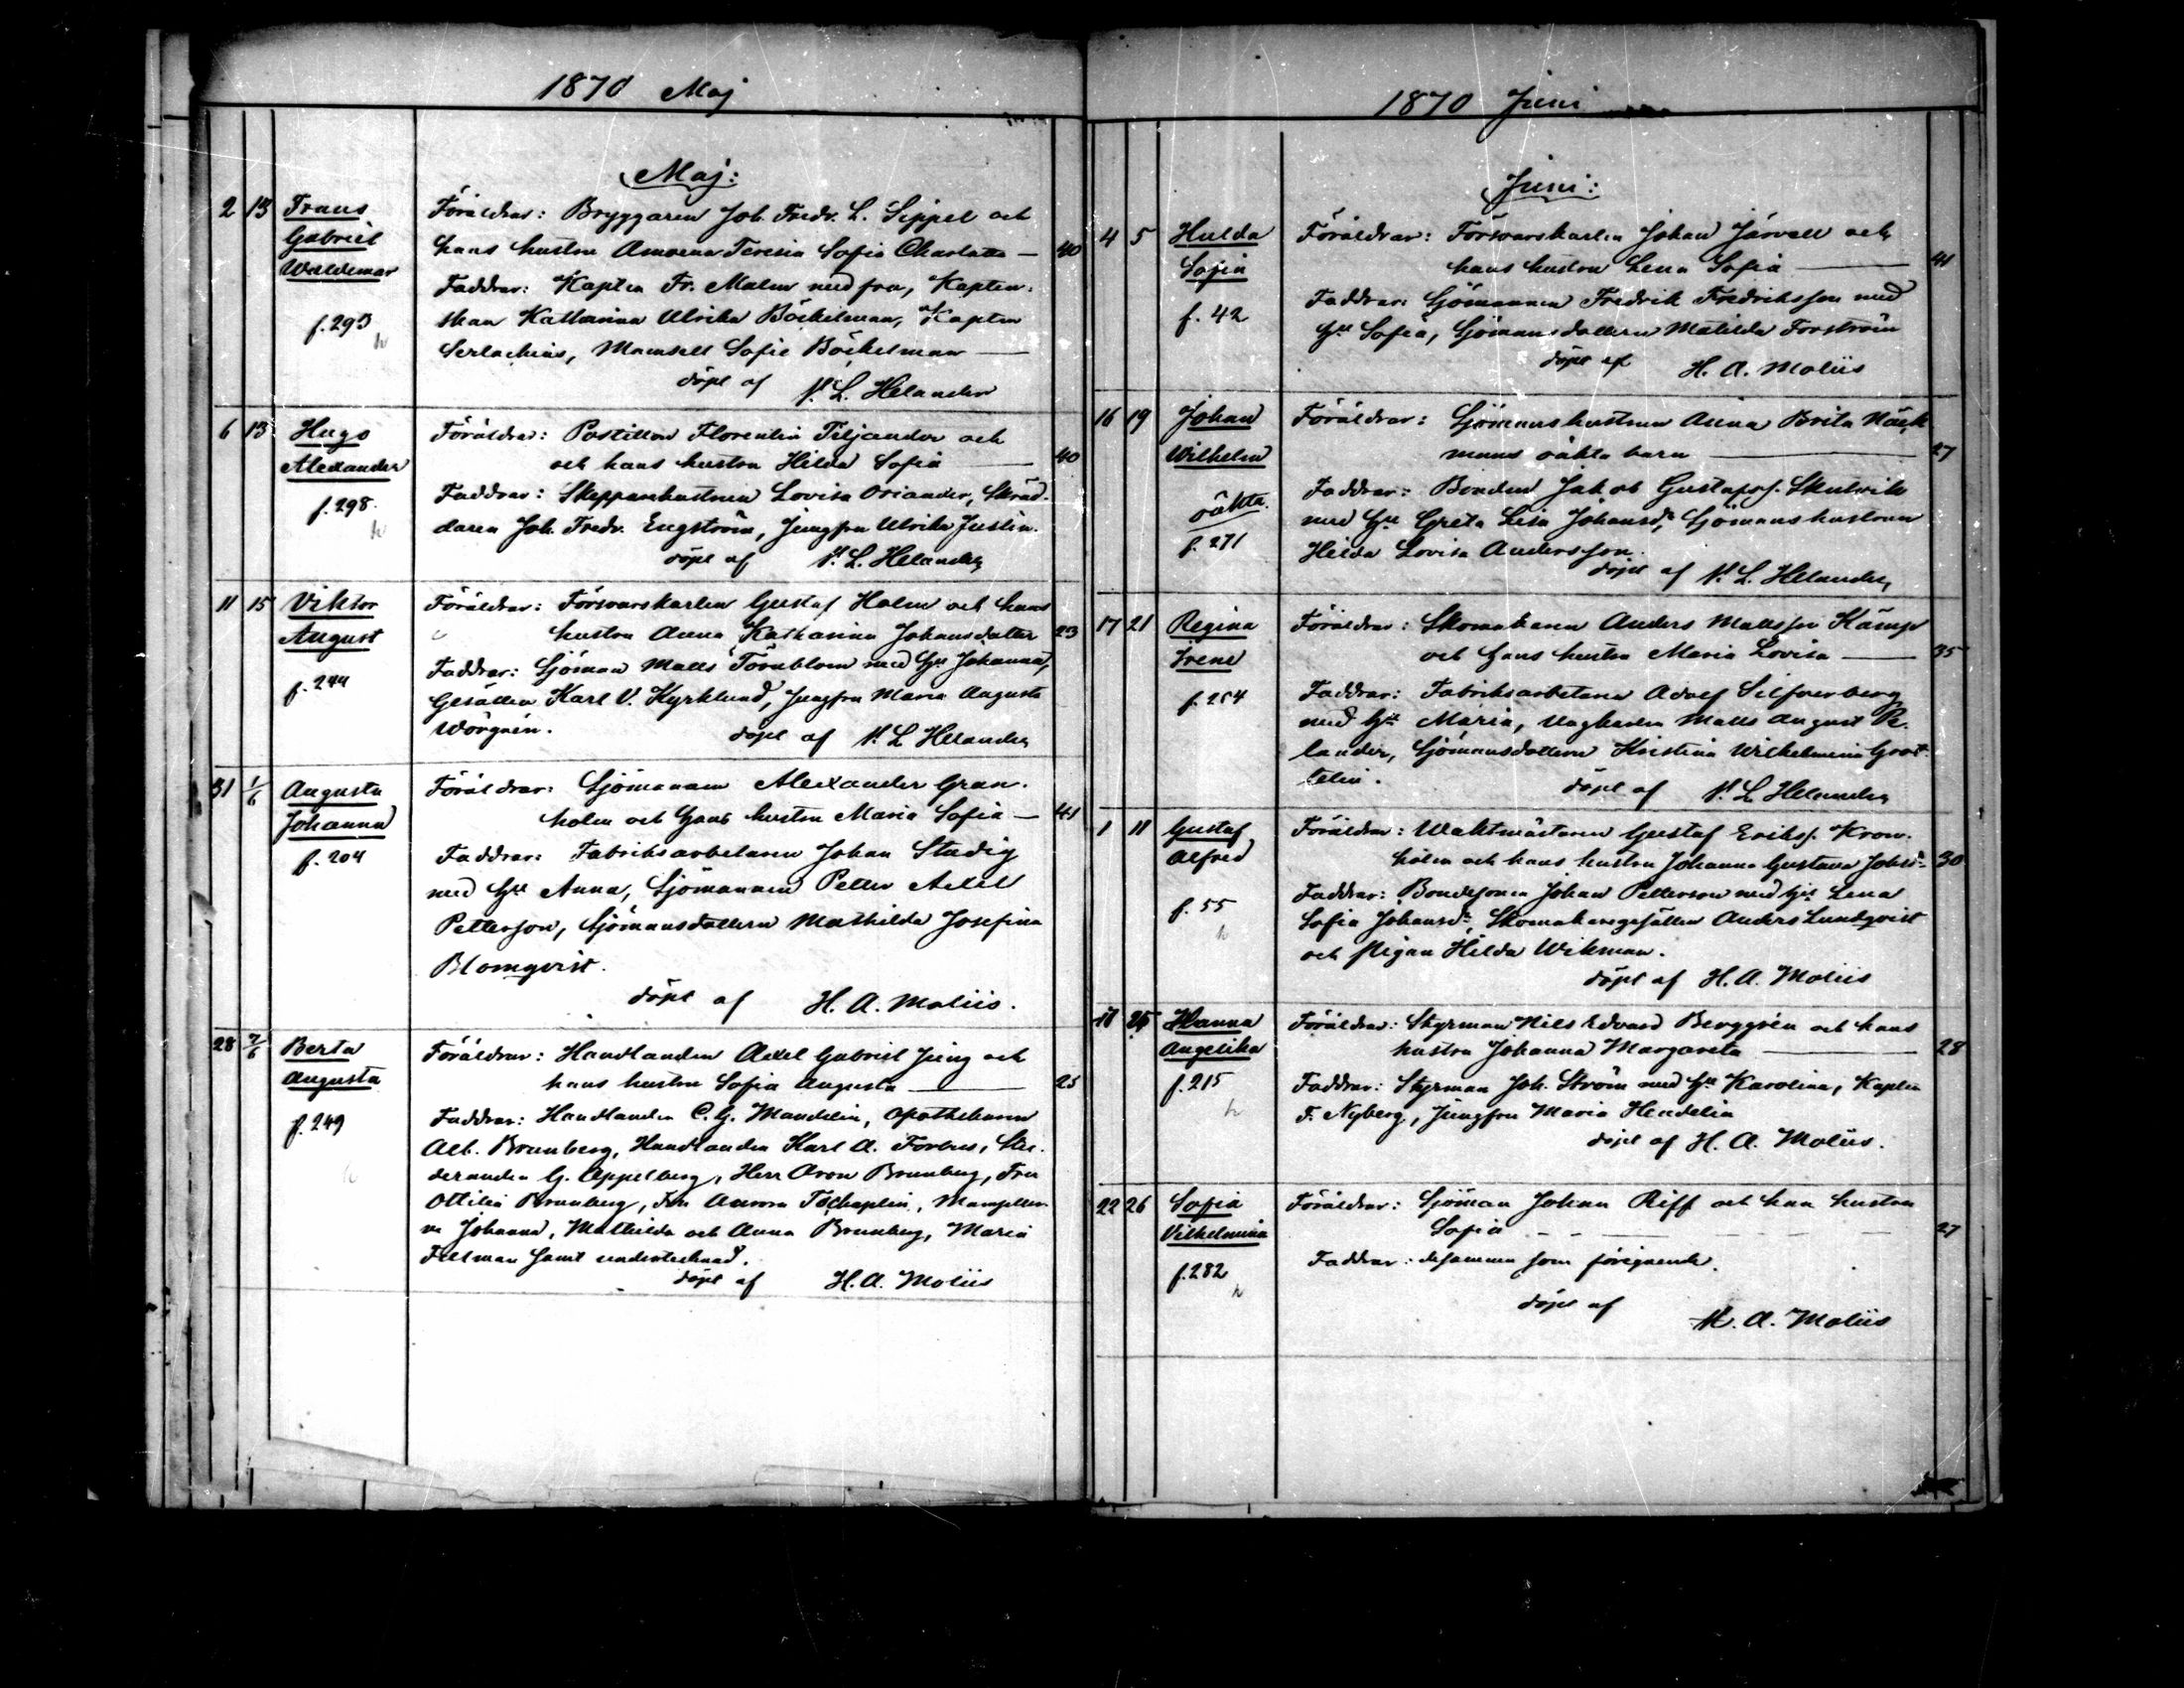 1870 Maj
Maj:
2 13 Frans Föräldrar: Bryggaren Joh. Fredr. L. Sippel och
Gabriel hans hustru Amoena Teresia Sofia Charlotta — 40
Waldemar Faddrar: Kapten Fr. Malm med fru, Kapten-
f. 293 skan Katharina Ulrika Böckelman, Kapten
Serlachius, Mamsell Sofie Böckelman —
döpt af N. L. Helander
6 13 Hugo Föräldrar: Postillon Florentin Siljander och
Alexander och hans hustru Hilda Sofia — 40
f. 298. Faddrar: Skepparehustrun Lovisa Oriander, Skräd-
daren Joh. Fredr. Engström, Jungfru Ulrika Justin.
döpt af N. L. Helander
11 15 Viktor Föräldrar: Försvarskarlen Gustaf Holm och hans
August hustru Anna Katharina Johansdotter 23
f. 244 Faddrar: Sjöman Matts Törnblom med Hu Johanna,
Gesällen Karl V. Kyrklund, Jungfru Maria Augusta
Wörgrén.
döpt af N. L. Helander
31 1/6 Augusta Föräldrar: Sjömannen Alexander Gran-
Johanna holm och hans hustru Maria Sofia — 41
f. 204 Faddrar: Fabriksarbetaren Johan Stadig
med Hu Anna, Sjömannen Petter Axel
Petterson, Sjömansdottern Mathilda Josefina
Blomqvist.
döpt af H. A. Moliis.
28 7/6 Berta Föräldrar: Handlanden Axel Gabriel Jung och
Augusta hans hustru Sofia Augusta — 25
f. 249 Faddrar: Handlanden C. G. Mandelin, Apothekaren
Alb. Brunberg, Handlanden Karl A. Forbus, Stu-
deranden G. Appelberg, Herr Aron Brunberg, Fru
Ottilia Brunberg, Fru Aurora Tschaplin, Mamseller-
na Johanna, Mathilda och Anna Brunberg, Maria
Fellman samt undertecknad.
döpt af H. A. Moliis
1870 Juni
Juni:
4 5 Hulda Föräldrar: Försvarskarlen Johan Järvell och
Sofia hans hustru Lena Sofia — 41
f. 42 Faddrar: Sjömannen Fredrik Fredriksson med
Hu Sofia, Sjömansdottern Matilda Forström
döpt af H. A. Moliis
16 19 Johan Föräldrar: Sjömanshustrun Anna Brita Näck-
Wilhelm mans oäkta barn — 27
oäkta. Faddrar: Bonden Jakob Gustafss. Skutvik
f. 271 med Hu Greta Lisa Johansdr, Sjömanshustrun
Hilda Lovisa Andersson.
döpt af N. L. Helander
17 21 Regina Föräldrar: Skomakaren Anders Mattsson Kämp
Irene och hans hustru Maria Lovisa — 35
f. 254 Faddrar: Fabriksarbetaren Adolf Silfverberg
med Hu Maria, Ungkarlen Matts August Pe-
lander, Sjömansdottern Kristina Wilhelmina Grot-
telin.
döpt af N. L. Helander
1 11 Gustaf Föräldrar: Waktmästaren Gustaf Eriks. Kron-
Alfred holm och hans hustru Johanna Gustava Johsdr. 30
f. 55 Faddrar: Bondesonen Johan Petterson med Hu Lena
Sofia Johansdr, Skomakaregesällen Anders Lundqvist
och Pigan Hilda Wikman.
döpt af H. A. Moliis
11 25 Hanna Föräldrar: Styrman Nils Edvard Berggrén och hans
Angelika hustru Johanna Margareta — 28
f. 215 Faddrar: Styrman Joh. Ström med Hu Karolina, Kapten
F. Nyberg, Jungfru Maria Hendelin
döpt af H. A. Moliis.
22 26 Sofia Föräldrar: Sjöman Johan Riff och han hustru
Vilhelmina Sofia — 27
f. 282 Faddrar: desamma som föregående.
döpt af H. A. Moliis